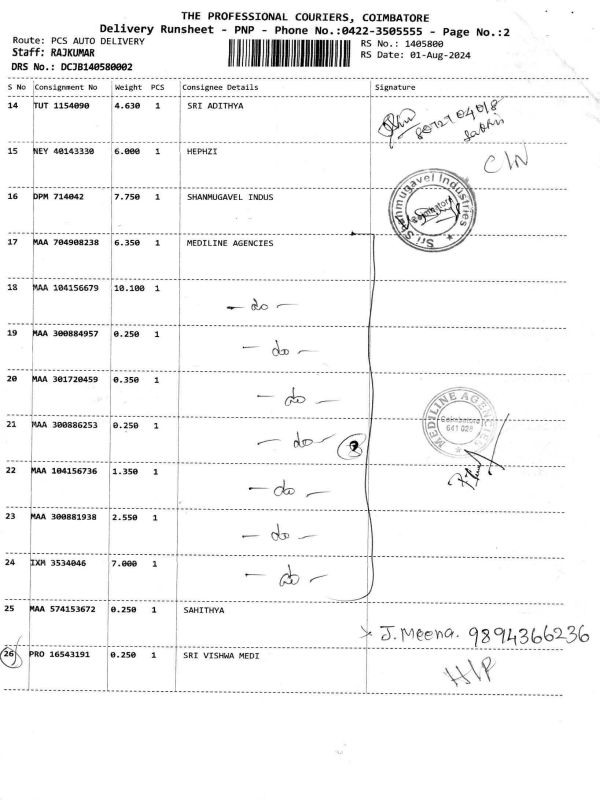 THE PROFESSIONAL COURIERS, COIMBATORE
Delivery Runsheet - PNP - Phone No.:0422-3505555 - Page No.:2
Route: PCS AUTO DELIVERY
Staff: RAJKUMAR
DRS No.: DCJB140580002
RS No.: 1405800
RS Date: 01-Aug-2024
S No Consignment No Weight PCS Consignee Details Signature
14 TUT 1154090 4.630 1 SRI ADITHYA
15 NEY 40143330 6.000 1 HEPHZI
C/N
16 DPM 714042 7.750 1 SHANMUGAVEL INDUS
Sri Shanmugavel Industries
Coimbatore
17 MAA 704908238 6.350 1 MEDILINE AGENCIES
18 MAA 104156679 10.100 1 - do -
19 MAA 300884957 0.250 1 - do -
20 MAA 301720459 0.350 1 - do -
21 MAA 300886253 0.250 1 - do - 8
MEDILINE AGENCIES
Coimbatore
641 028
22 MAA 104156736 1.350 1 - do -
23 MAA 300881938 2.550 1 - do -
24 IXM 3534046 7.000 1 - do -
25 MAA 574153672 0.250 1 SAHITHYA
J. Meena. 9894366236
26 PRO 16543191 0.250 1 SRI VISHWA MEDI